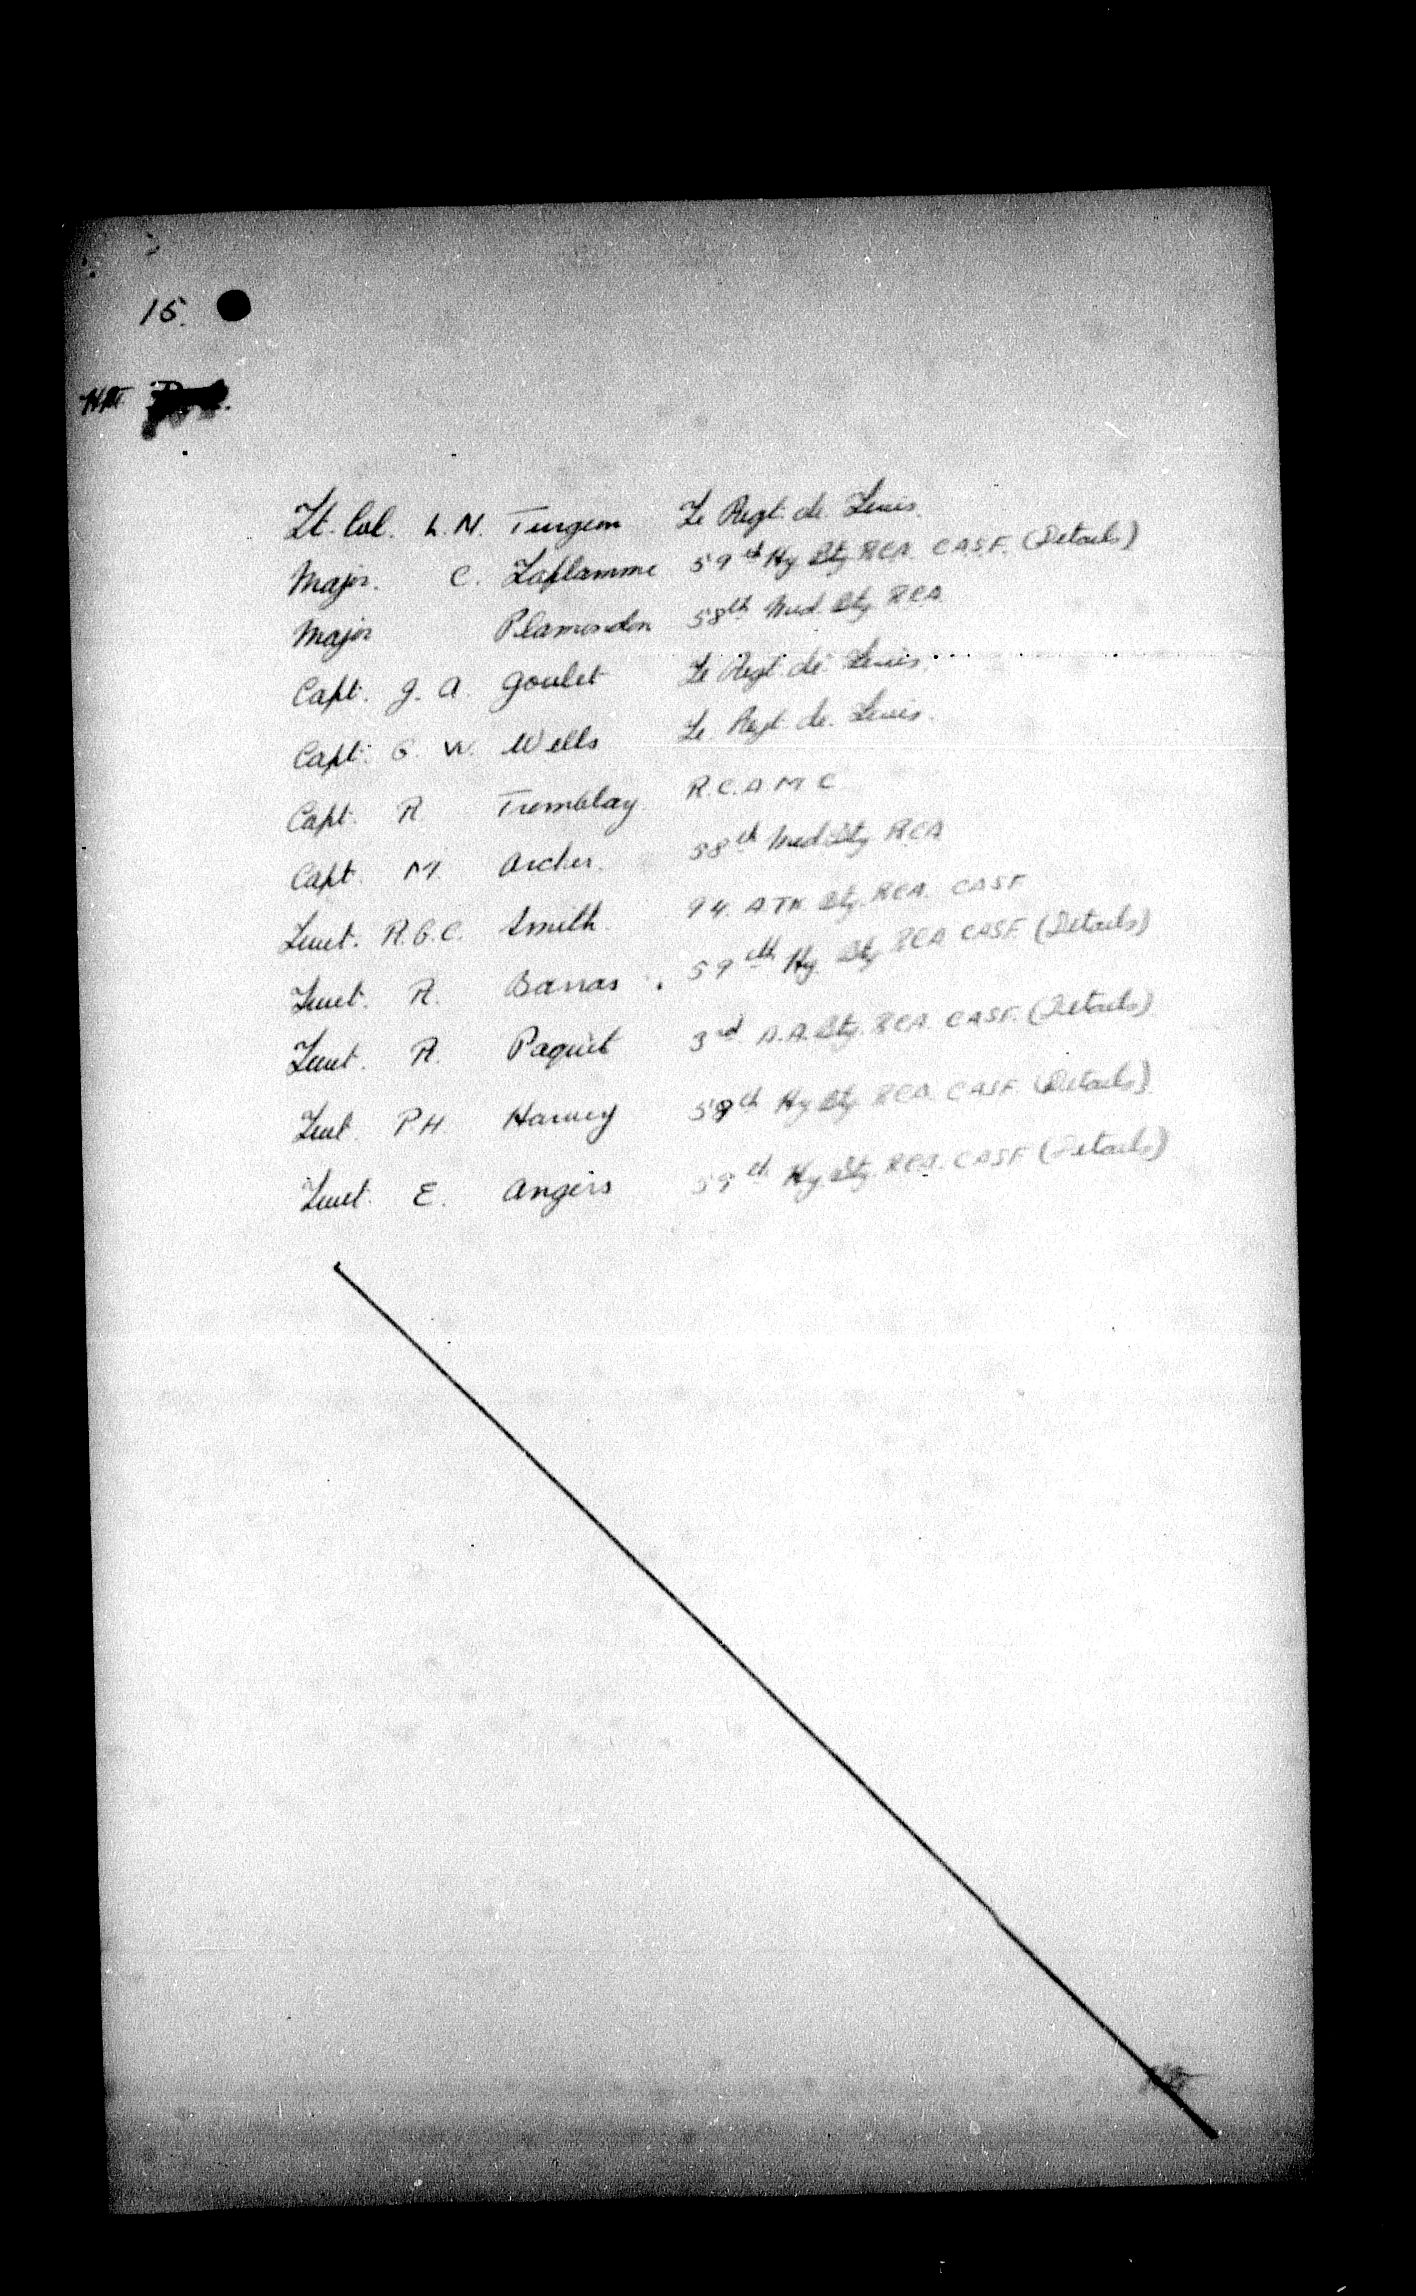 15.
Lt. Col. L.N. Turgeon Le Regt. de Levis.
Major. C. Laflamme 59th Hy Bty RCA. CASF. (Details)
Major Plamondon 58th Med. Bty RCA
Capt. J. A. Goulet Le Regt. de Levis.
Capt. G. W. Wells Le Regt. de. Levis.
Capt. R. Tremblay R.C.A M C
Capt. M. Archer. 58th Med Bty RCA
Lieut. R.G.C. Smith. 94. A TK Bty. RCA. CASF
Lieut. R. Barras 59th Hy Bty RCA CASF (Details)
Lieut. R. Paquet 3rd A.A. Bty. RCA. CASF. (Details)
Lieut. P H Harvey 59th Hy Bty RCA. CASF. (Details)
Lieut. E. Angers 59th Hy Bty. RCA. CASF (Details)